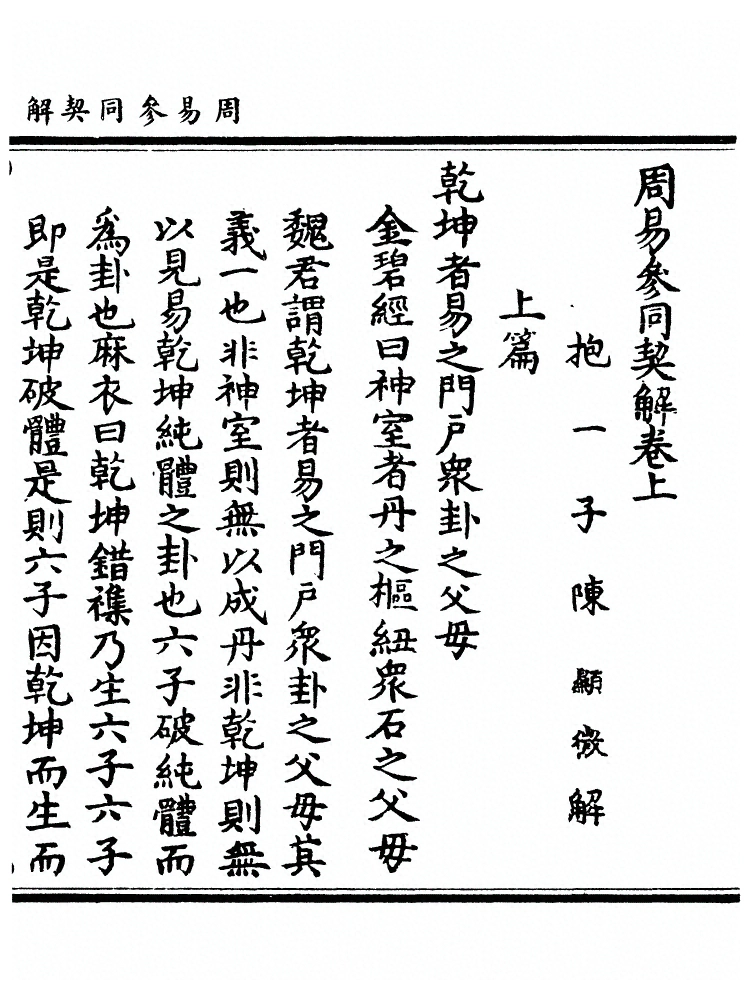 周易參同契解
周易參同契解卷上
抱一子陳顯微解
上篇
乾坤者易之門戶衆卦之父毋
金碧經曰神室者丹之樞紐衆石之父毋
魏君謂乾坤者易之門戶衆卦之父毋其
義一也非神室則無以成丹非乾坤則無
以見易乾坤純體之卦也六子破純體而
爲卦也麻衣曰乾坤錯襍乃生六子六子
即是乾坤破體是則六子因乾坤而生而